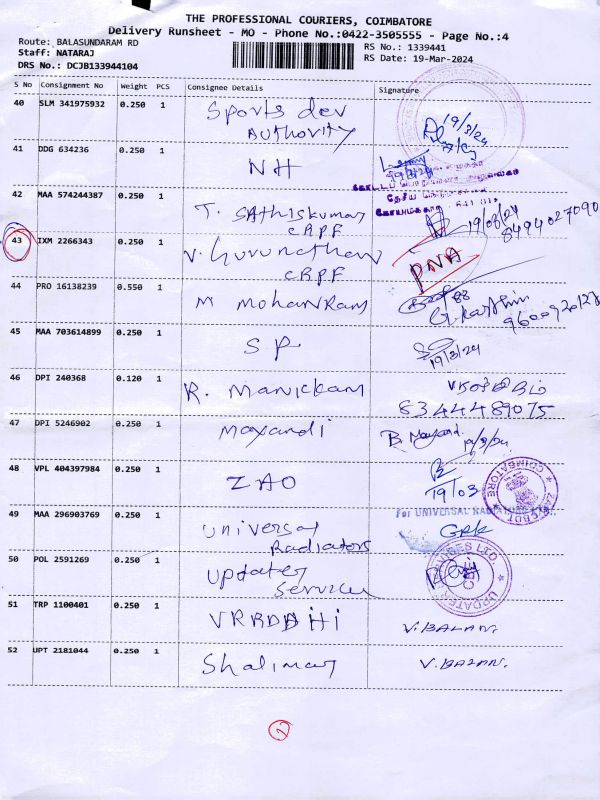 THE PROFESSIONAL COURIERS, COIMBATORE
Delivery Runsheet - MO - Phone No.:0422-3505555 - Page No.:4
Route: BALASUNDARAM RD
Staff: NATARAJ
DRS No.: DCJB133944104
RS No.: 1339441
RS Date: 19-Mar-2024
S No Consignment No Weight PCS Consignee Details Signature
40 SLM 341975932 0.250 1 Sports dev
Authority
19/3/24
41 DDG 634236 0.250 1 NH
42 MAA 574244387 0.250 1 T. Sathiskumar
CRPF
8494027090
43 IXM 2266343 0.250 1 V. Gurunathan
CRPF
DNA
44 PRO 16138239 0.550 1 M Mohan Ram
G. Karthin
45 MAA 703614899 0.250 1 SP
19/3/24
46 DPI 240368 0.120 1 R. Manickam
8344489075
47 DPI 5246902 0.250 1 Mayandi B. Mayandi
48 VPL 404397984 0.250 1 ZAO
19/03
COIMBATORE
49 MAA 296903769 0.250 1 Universal
Radiators
For UNIVERSAL RADIATORS
50 POL 2591269 0.250 1 Updater
Services
UPDATER SERVICES LTD.
CBE
51 TRP 1100401 0.250 1 VRRDDHI V. BALAN.
52 UPT 2181044 0.250 1 Shalimar V. BALAN.
2